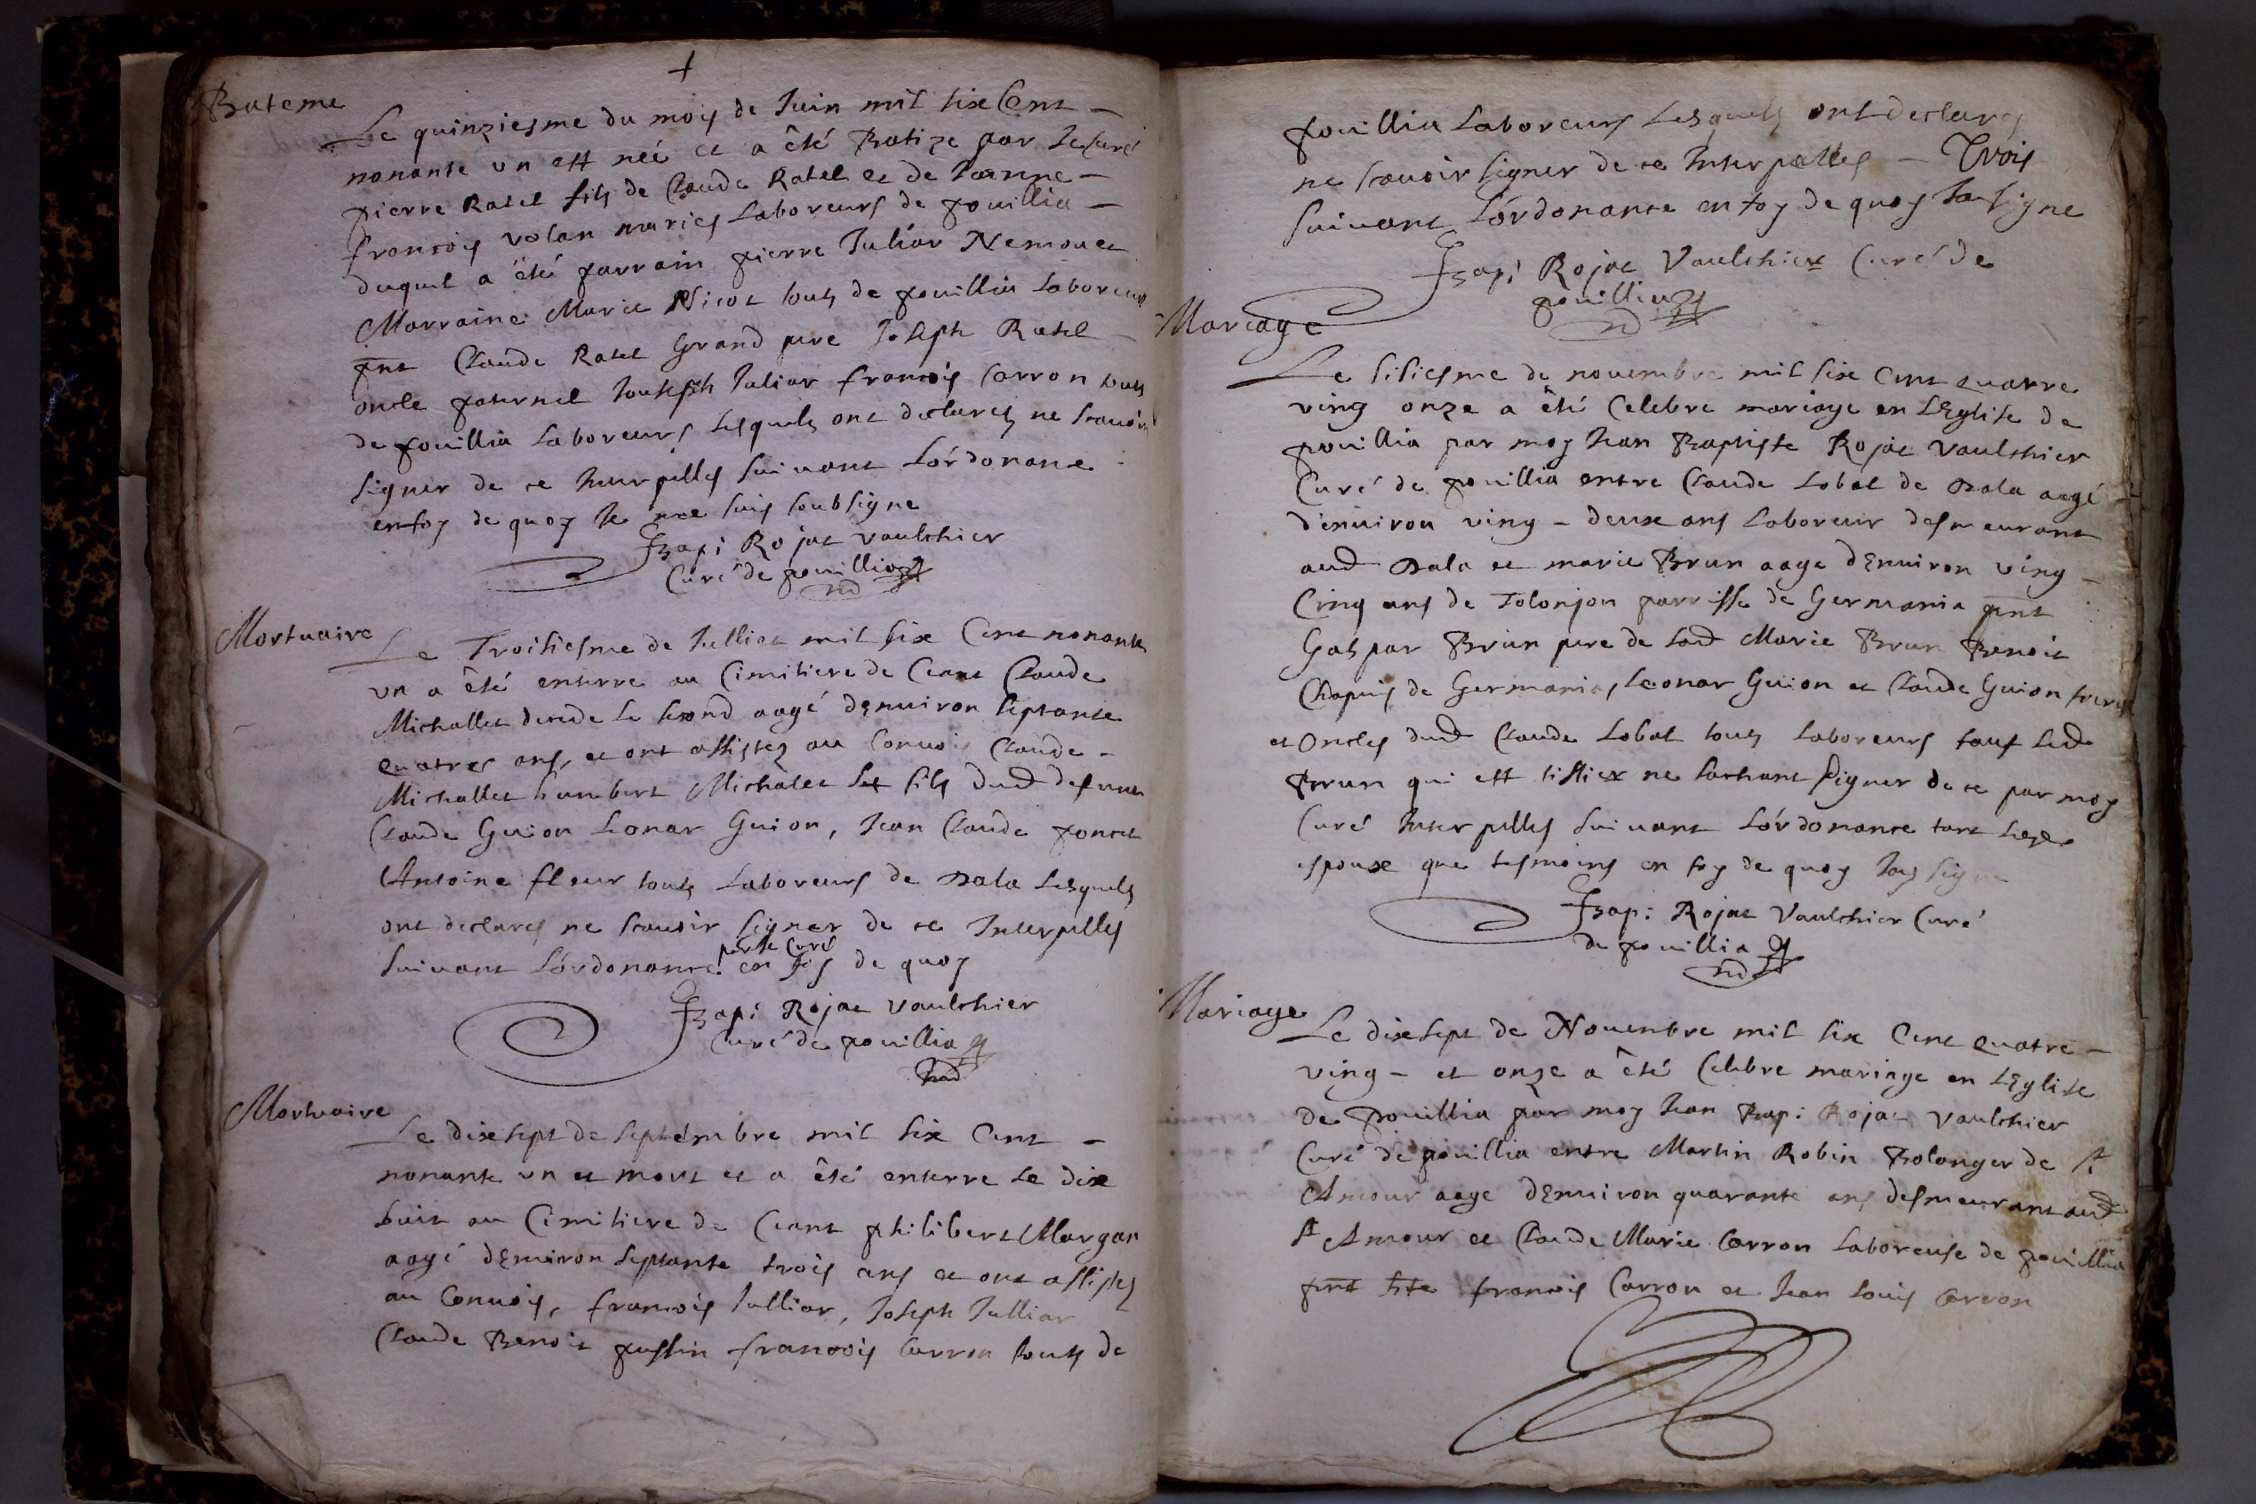 +
Bateme
Le quinziesme du moys de Juin mil six Cent –
nonante un est neé et a êté Batize par le Curé
pierre Ratel fils de Claude Ratel et de Jeanne –
francois volan maries Laboreurs de pouillia –
duquel a êté parrain pierre Juliar Nemouet
Marraine Marie Nicot touts de pouillia Laboreurs
pnt Claude Ratel Grand pere Joseph Ratel
oncle paternel Jouseph Juliar francois Carron touts
de pouillia Laboreurs Lesquels ont declares ne scavoir
signer de ce Interpelles suivant L'ordonance
en foy de quoy Je me suis soubsigne
JBapt: Rojat vaulchier
Curé de pouillia
Mortuaire
Le Troisiesme de Julliet mil six Cent nonante
un a êté enterre au Cimitiere de Ceant Claude
Michallet decede Le second aagé d'enuiron septante
quatres ans, et ont assistez au Conuois Claude –
Michallet humbert Michalet fils dud defunct
Claude Guion Leonar Guion, Jean Claude poncet
Antoine fleur touts Laboreurs de Dala Lesquels
ont declares ne scauoir signer de ce Interpelles
par le Curé
suivant L'ordonance en foy de quoy
JBapt: Rojat vaulchier
Curé de pouillia
Mortuaire
Le dixsept de septembre mil six Cent –
nonante un et mort et a êté enterre Le dix
huit au Cimitiere de Ceant philibert Margar
aagé d'Enuiron septante trois ans et ont assistes
au Conuois, francois Julliar, Joseph Julliar
Claude Benoit pussin francois Carron touts de
pouillia Laboreurs Lesquels ont declares
ne scauoir signer de ce Interpelles – Trois
suiuant L'ordonance en foy de quoy Jay signe
JBapt: Rojat Vaulchier Curé de
pouillia
Mariage
Le sisiesme de nouembre mil six Cent quatre
ving onze a êté Celebre mariage en L'Eglise de
pouillia par moy Jean Baptiste Rojat vaulchier
Curé de pouillia entre Claude Lobat de Dala aagé
d'enuiron ving – deux ans Laboreur desmeurant
aud Dala et marie Brun aage d'Enuiron ving –
Cinq ans de Tolonjon parrisse de Germania pnt
Gaspar Brun pere de Lad Marie Brun Benoit
Chapuis de Germania, Leonar Guion et Claude Guion freres
et Oncles dud Claude Lobat touts Laboreurs sauf Led
Brun qui est tissier ne sachant signer de ce par moy
Curé Interpelles suivant L'ordonance tant Les
espoux que tesmoins en foy de quoy Jay signe
JBapt: Rojat Vaulchier Curé
de pouillia
Mariage
Le dixsept de Nouembre mil six Cent quatre –
ving – et onze a êté Celebre mariage en L'Eglise
de pouillia par moy Jean Bapt: Rojat vaulchier
Curé de pouillia entre Martin Robin Bolonger de St
Amour aage d'Enuiron quarante ans desmeurant aud
St Amour et Claude Marie Carron Laboreuse de pouillia
pnt francois Carron et Jean Louis Carron